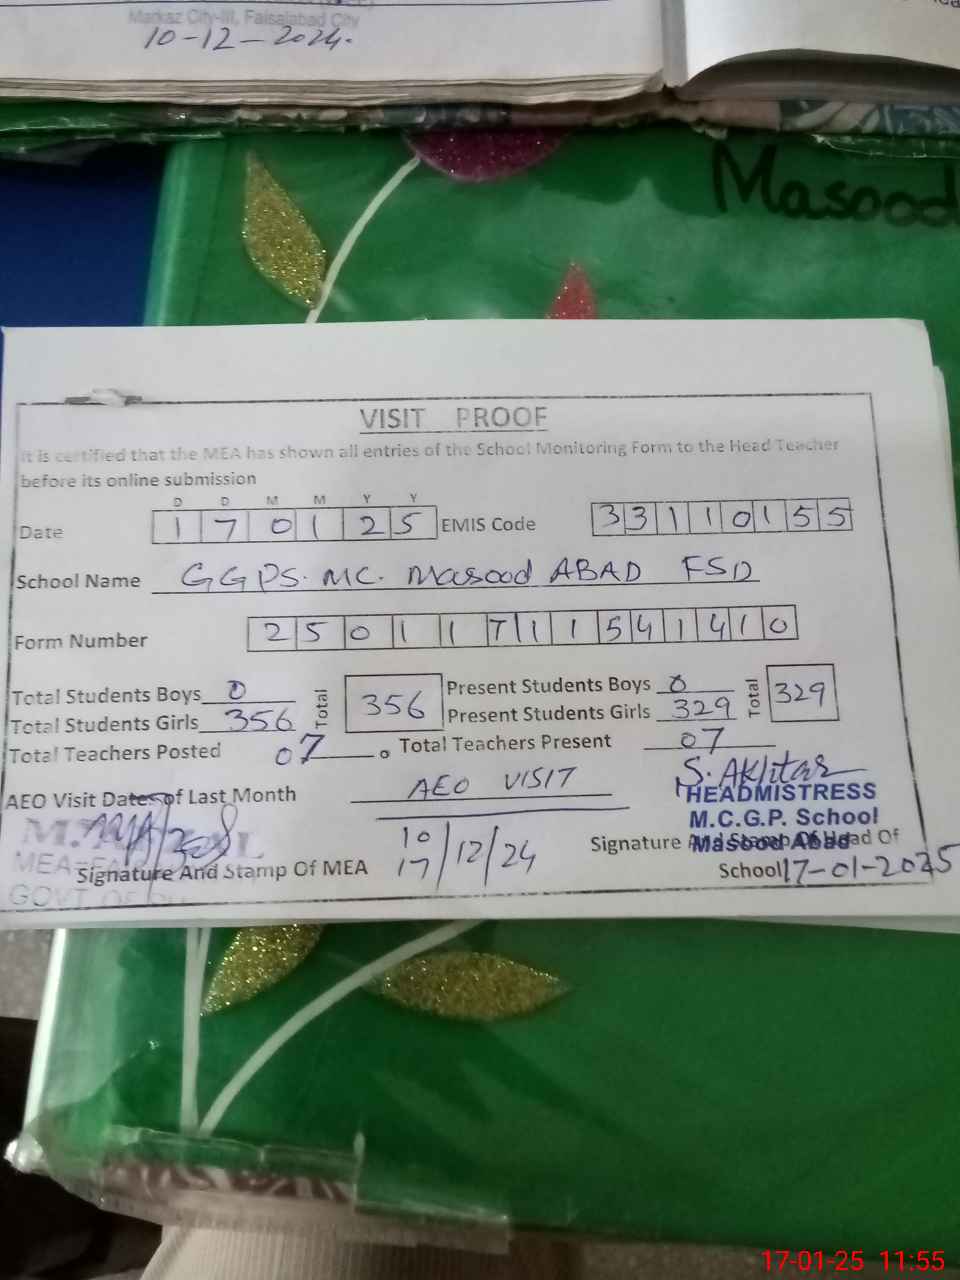 Markaz City-III, Faisalabad City
10-12-2024.
Masood
VISIT PROOF
It is certified that the MEA has shown all entries of the School Monitoring Form to the Head Teacher
before its online submission
D D M M Y Y
Date 1 7 0 1 2 5 EMIS Code 3 3 1 1 0 1 5 5
School Name GGPS. MC. Masood ABAD FSD
Form Number 2 5 0 1 1 7 1 1 5 4 1 4 1 0
Total Students Boys 0 Total 356 Present Students Boys 0 Total 329
Total Students Girls 356 Present Students Girls 329
Total Teachers Posted 07 Total Teachers Present 07
AEO Visit Dates of Last Month AEO VISIT
S. Akhtar
HEADMISTRESS
M.C.G.P. School
Masood Abad
10/12/24
17
Signature And Stamp Of MEA
Signature And Stamp Of Head Of
School 17-01-2025
17-01-25 11:55